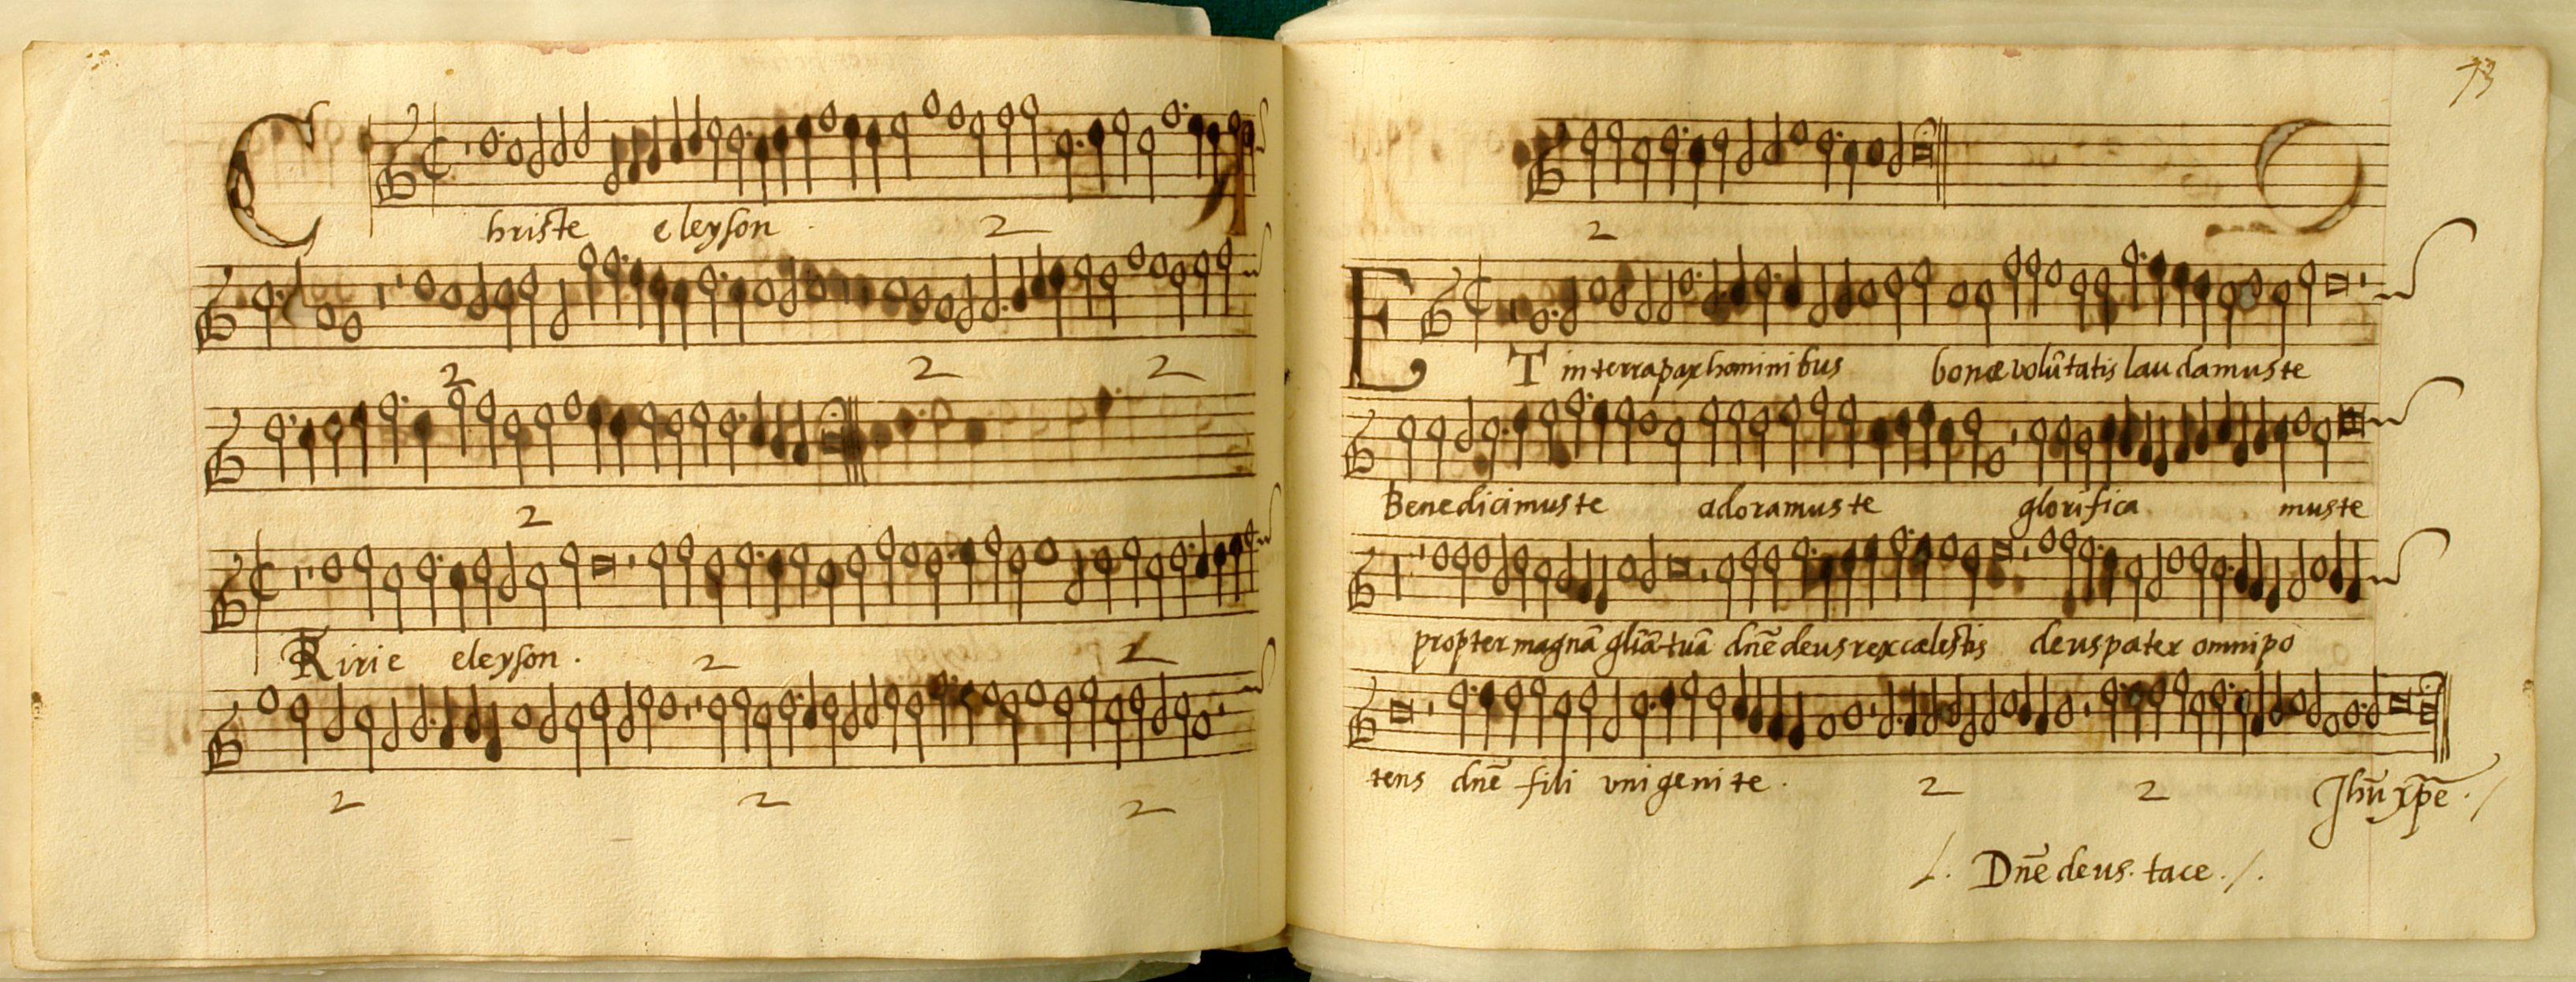 Christe eleyson . 2
2 2 2
2
Kirie eleyson . 2 2
2 2 2
73
2
ET in terra pax hominibus bonæ volūtatis laudamus te
Benedicimus te adoramus te glorifica mus te
propter magnā gliā tuā dnē deus rex cælestis deus pater omnipo
tens dnē fili unigenite . 2 2 Jhū xpē ./
/. Dnē deus. tace ./.